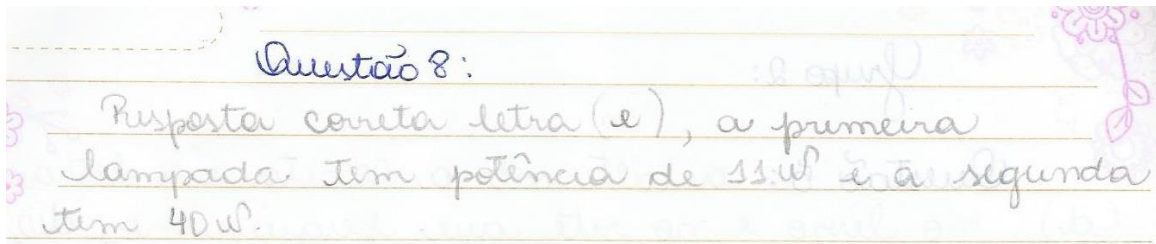 Questão 8:
Resposta correta letra (e), a primeira
lampada tem potência de 11:W e a segunda
tem 40W.